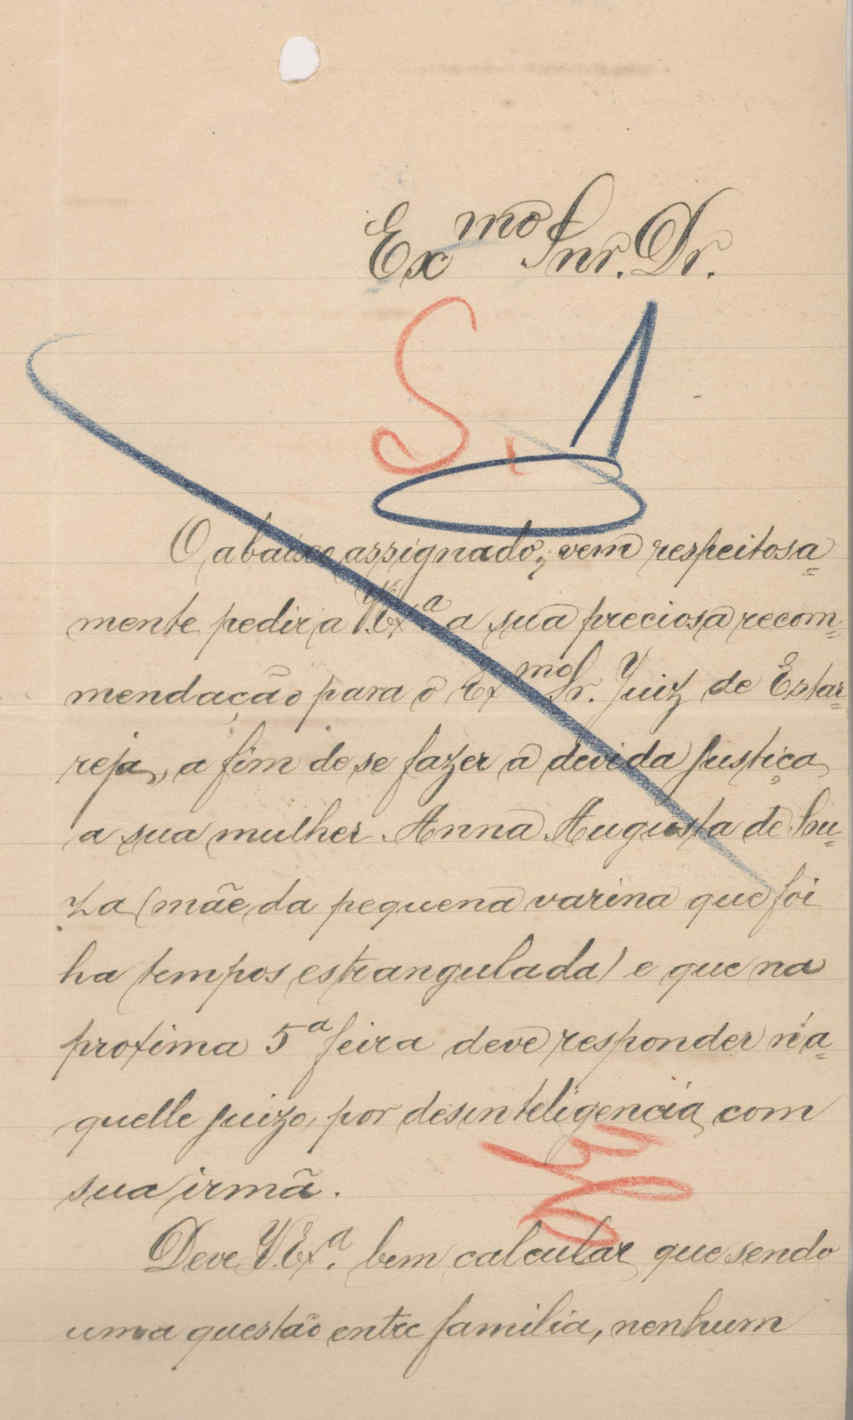 Exmo Snr. Dr.
S.
O abaixo assignado, vem respeitosa=
mente pedir a V. Exa a sua preciosa recom=
mendação para o Exmo Sr. Juiz de Estar=
reja, a fim de se fazer a devida justiça
a sua mulher Anna Augusta de Sou=
za (mãe da pequena varina que foi
ha tempos estrangulada) e que na
proxima 5a feira deve responder n'a=
quelle juizo, por desinteligencia com
sua irmã.
Deve V. Exa. bem calcular que sendo
uma questão entre familia, nenhum